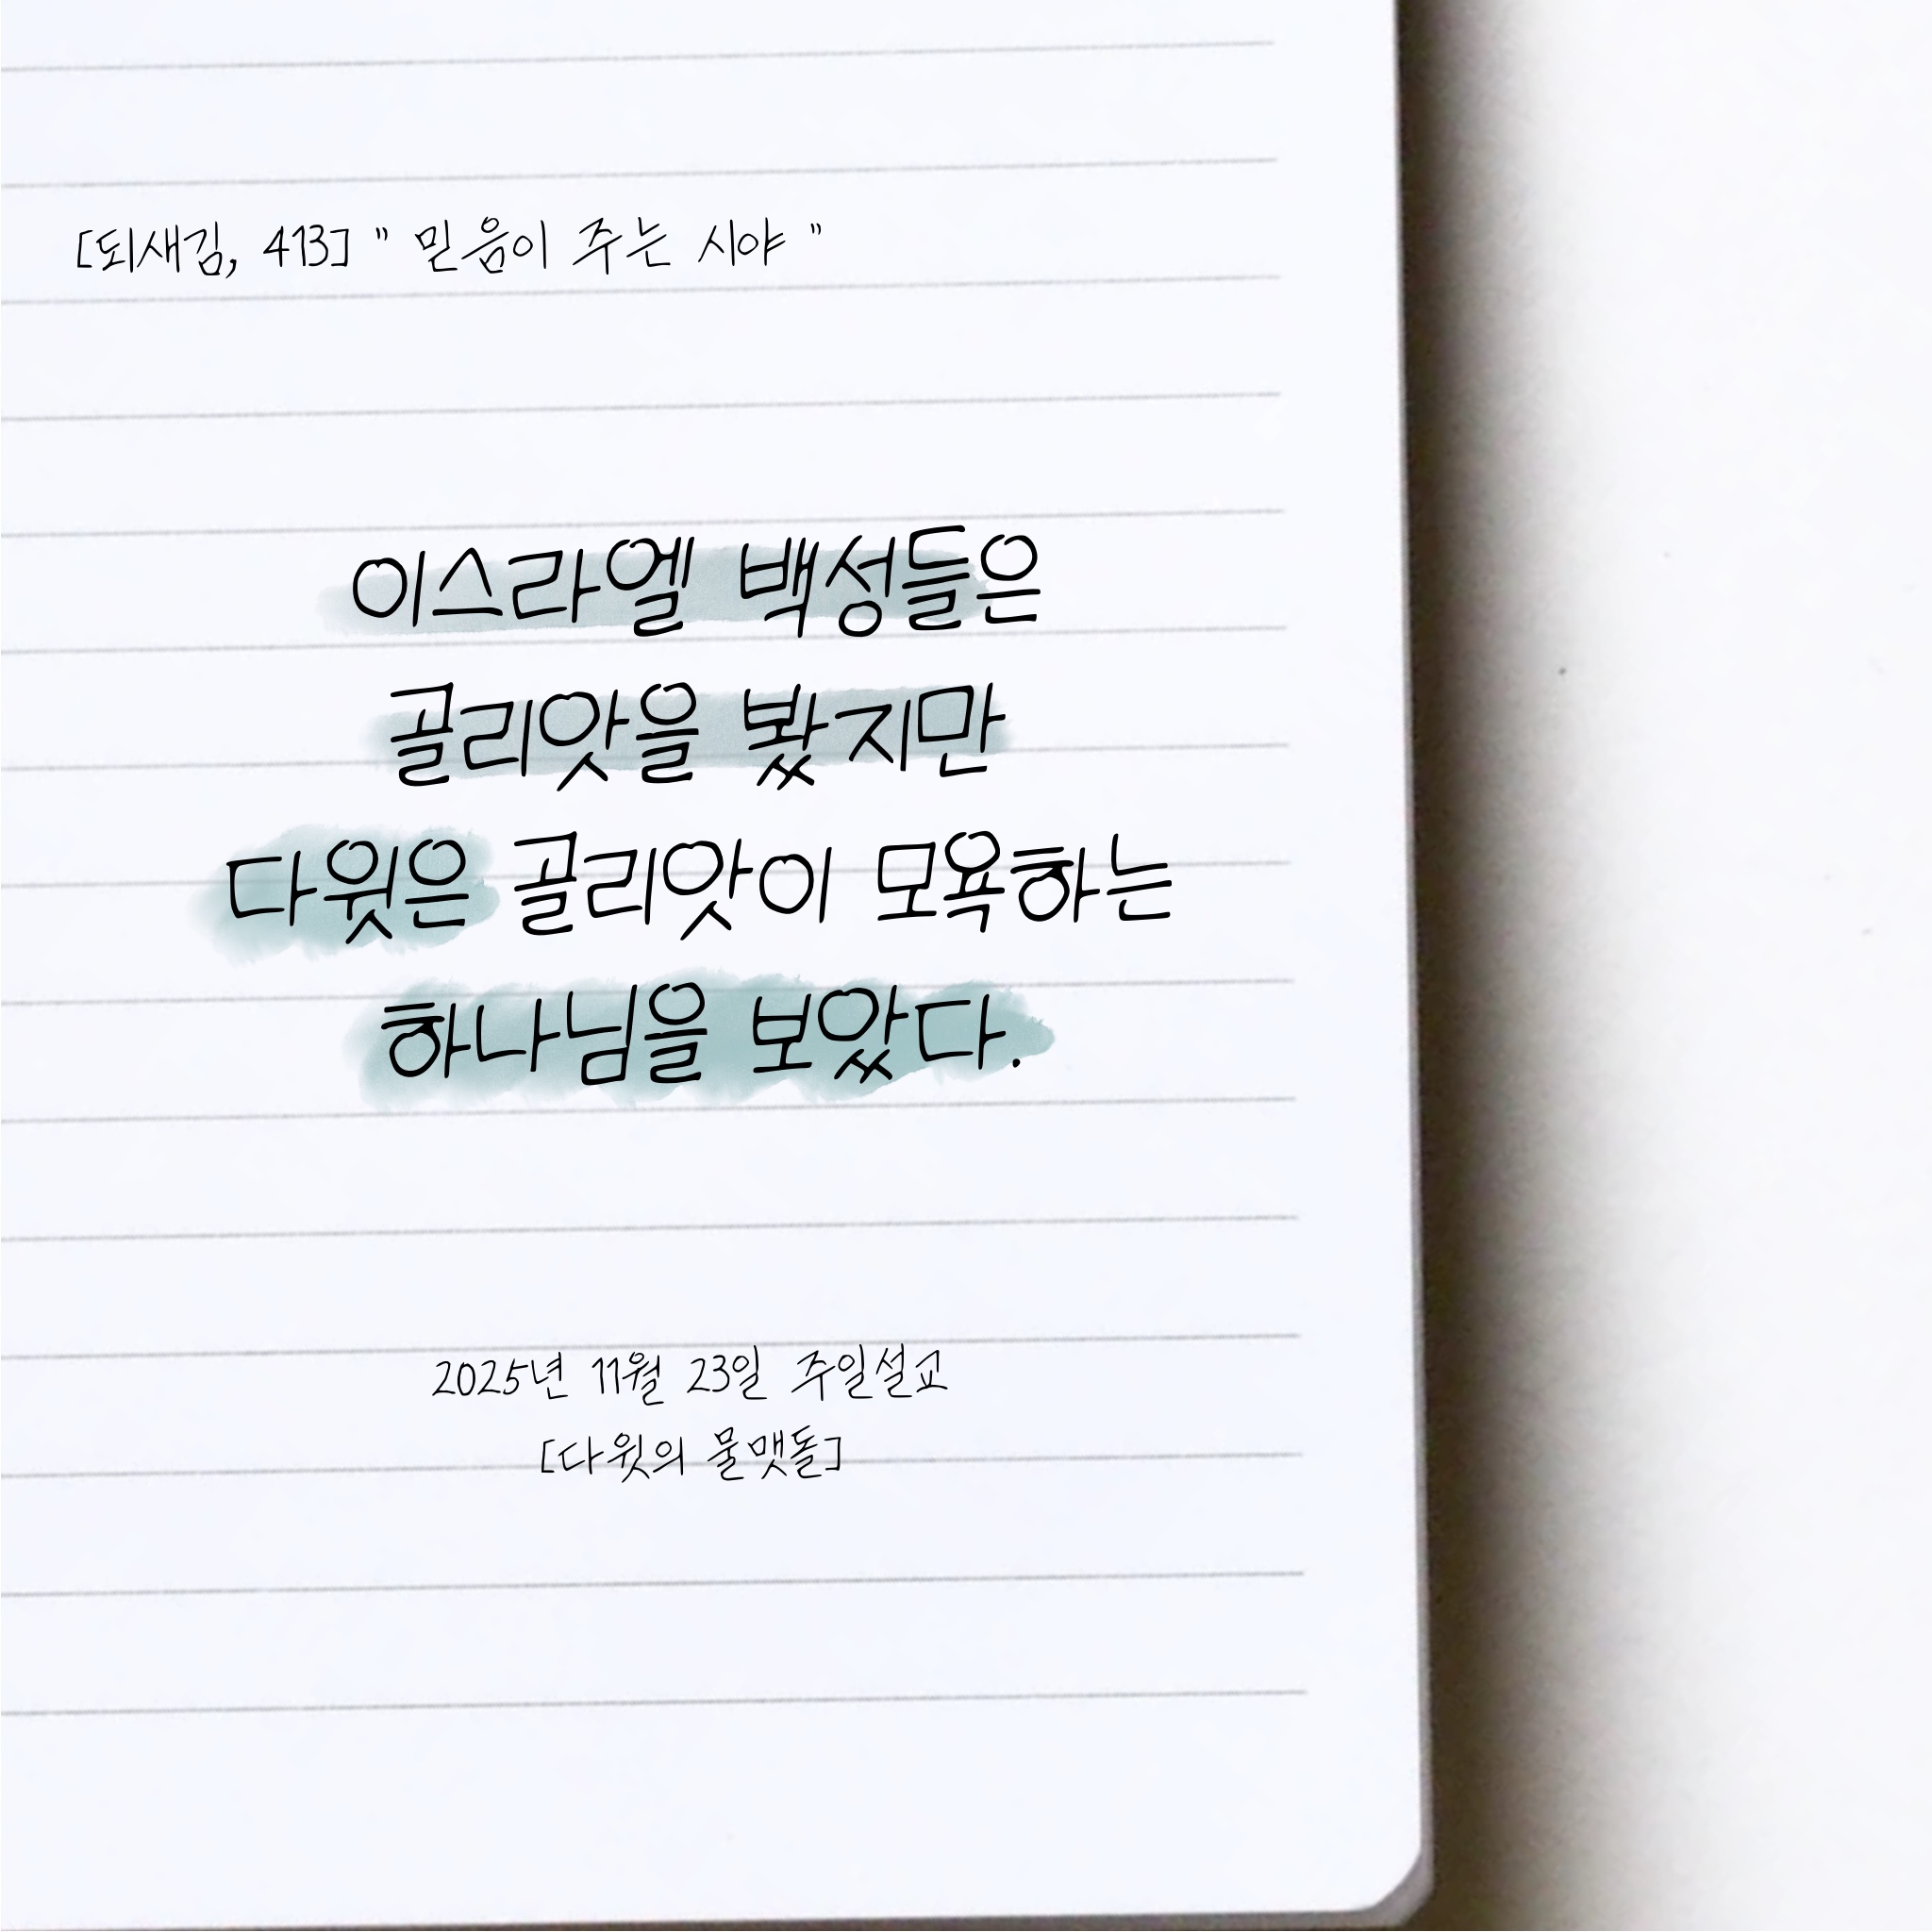 [되새김, 413] " 믿음이 주는 시야 "
이스라엘 백성들은
골리앗을 봤지만
다윗은 골리앗이 모욕하는
하나님을 보았다.
2025년 11월 23일 주일설교
[다윗의 물맷돌]